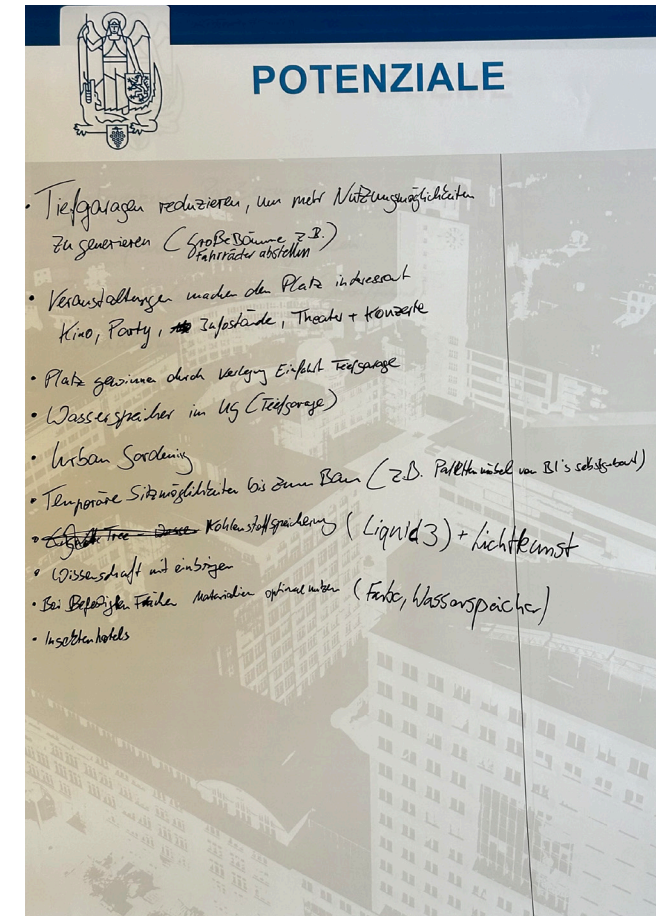 POTENZIALE
• Tiefgaragen reduzieren, um mehr Nutzungsmöglichkeiten
zu generieren (große Bäume z.B.)
Fahrräder abstellen
• Veranstaltungen machen den Platz interessant
Kino, Party, Infostände, Theater + Konzerte
• Platz gewinnen durch Verlegung Einfahrt Tiefgarage
• Wasserspeicher im UG (Tiefgarage)
• Urban Gardening
• Temporäre Sitzmöglichkeiten bis zum Bau (z.B. Palettenmöbel von BI's selbstgebaut)
• Tree Kohlenstoffspeicherung (Liquid3) + Lichtkunst
• Wissenschaft mit einbringen
• Bei Befestigten Flächen Materialien optimal nutzen (Farbe, Wasserspeicher)
• Insektenhotels